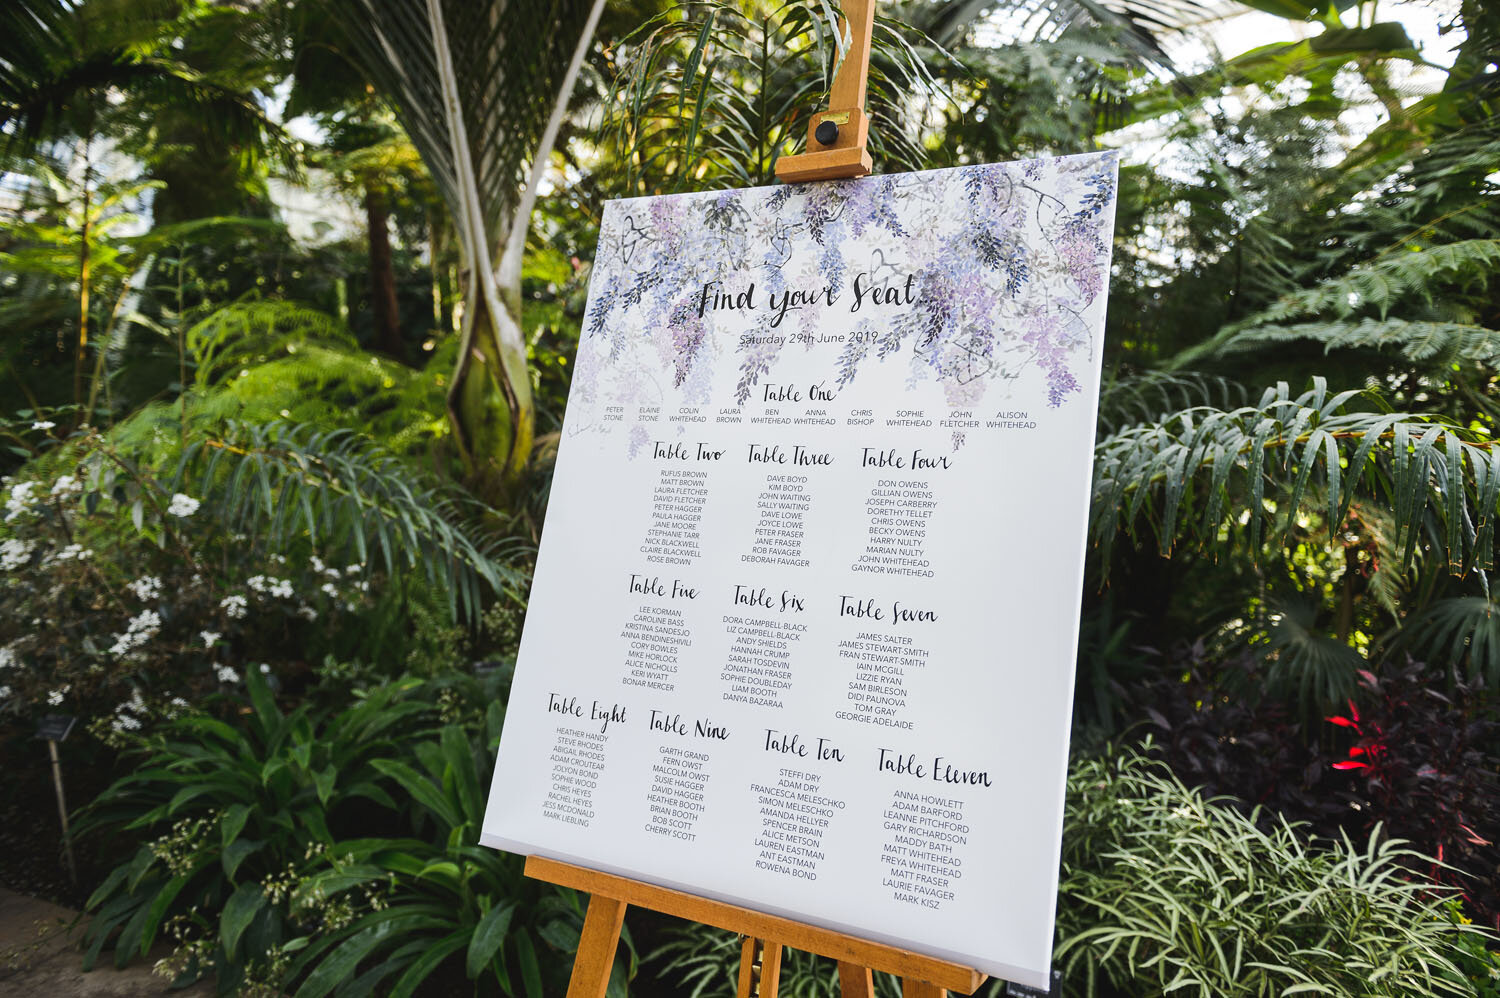 Find your Seat
Saturday 29th June 2019
Table One
PETER STONE
ELAINE STONE
COLIN WHITEHEAD
LAURA BROWN
BEN WHITEHEAD
ANNA WHITEHEAD
CHRIS BISHOP
SOPHIE WHITEHEAD
JOHN FLETCHER
ALISON WHITEHEAD
Table Two
RUFUS BROWN
MATT BROWN
LAURA FLETCHER
DAVID FLETCHER
PETER HAGGER
PAULA HAGGER
JANE MOORE
STEPHANIE TARR
NICK BLACKWELL
CLAIRE BLACKWELL
ROSE BROWN
Table Three
DAVE BOYD
KIM BOYD
JOHN WAITING
SALLY WAITING
DAVE LOWE
JOYCE LOWE
PETER FRASER
JANE FRASER
ROB FAVAGER
DEBORAH FAVAGER
Table Four
DON OWENS
GILLIAN OWENS
JOSEPH CARBERRY
DORETHY TELLET
CHRIS OWENS
BECKY OWENS
HARRY NULTY
MARIAN NULTY
JOHN WHITEHEAD
GAYNOR WHITEHEAD
Table Five
LEE KORMAN
CAROLINE BASS
KRISTINA SANDESJO
ANNA BENDINESHIVILI
CORY BOWLES
MIKE HORLOCK
ALICE NICHOLLS
KERI WYATT
BONAR MERCER
Table Six
DORA CAMPBELL-BLACK
LIZ CAMPBELL-BLACK
ANDY SHIELDS
HANNAH CRUMP
SARAH TOSDEVIN
JONATHAN FRASER
SOPHIE DOUBLEDAY
LIAM BOOTH
DANYA BAZARAA
Table Seven
JAMES SALTER
JAMES STEWART-SMITH
FRAN STEWART-SMITH
IAIN MCGILL
LIZZIE RYAN
SAM BIRLESON
DIDI PAUNOVA
TOM GRAY
GEORGIE ADELAIDE
Table Eight
HEATHER HANDY
STEVE RHODES
ABIGAIL RHODES
ADAM CROUTEAR
JOLYON BOND
SOPHIE WOOD
CHRIS HEYES
RACHEL HEYES
JESS MCDONALD
MARK LIEBLING
Table Nine
GARTH GRAND
FERN OWST
MALCOLM OWST
SUSIE HAGGER
DAVID HAGGER
HEATHER BOOTH
BRIAN BOOTH
BOB SCOTT
CHERRY SCOTT
Table Ten
STEFFI DRY
ADAM DRY
FRANCESCA MELESCHKO
SIMON MELESCHKO
AMANDA HELLYER
SPENCER BRAIN
ALICE METSON
LAUREN EASTMAN
ANT EASTMAN
ROWENA BOND
Table Eleven
ANNA HOWLETT
ADAM BARFORD
LEANNE PITCHFORD
GARY RICHARDSON
MADDY BATH
MATT WHITEHEAD
FREYA WHITEHEAD
MATT FRASER
LAURIE FAVAGER
MARK KISZ